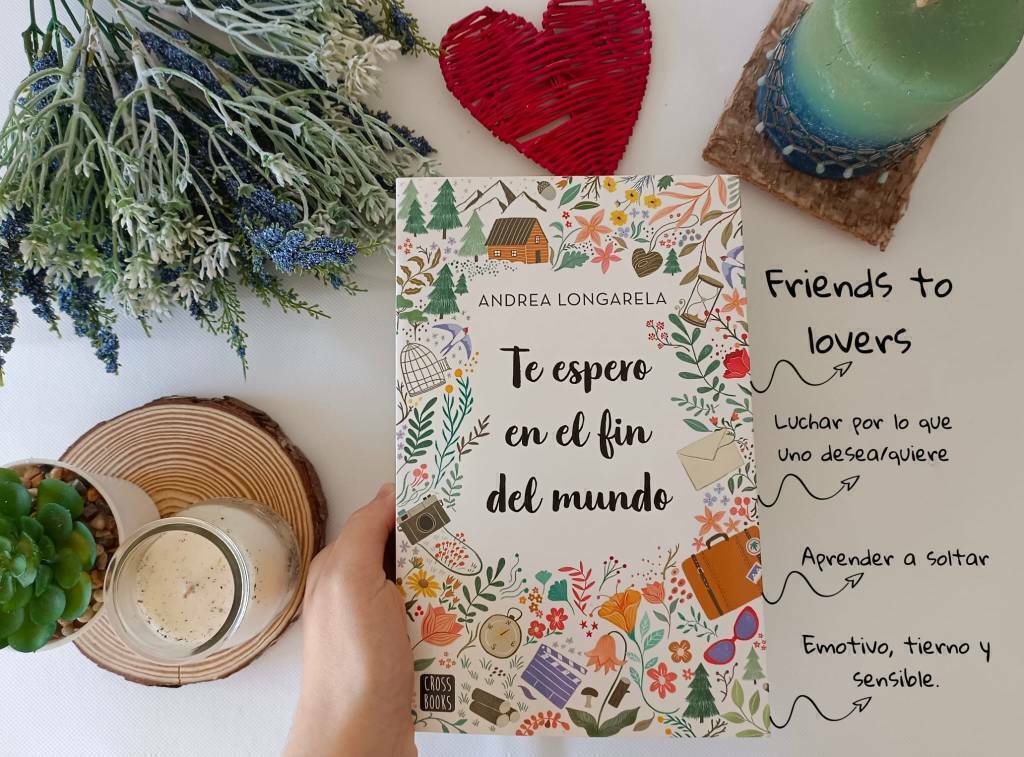 ANDREA LONGARELA
Te espero
en el fin
del mundo
CROSS
BOOKS
Friends to
lovers
Luchar por lo que
uno desea/quiere
Aprender a soltar
Emotivo, tierno y
sensible.